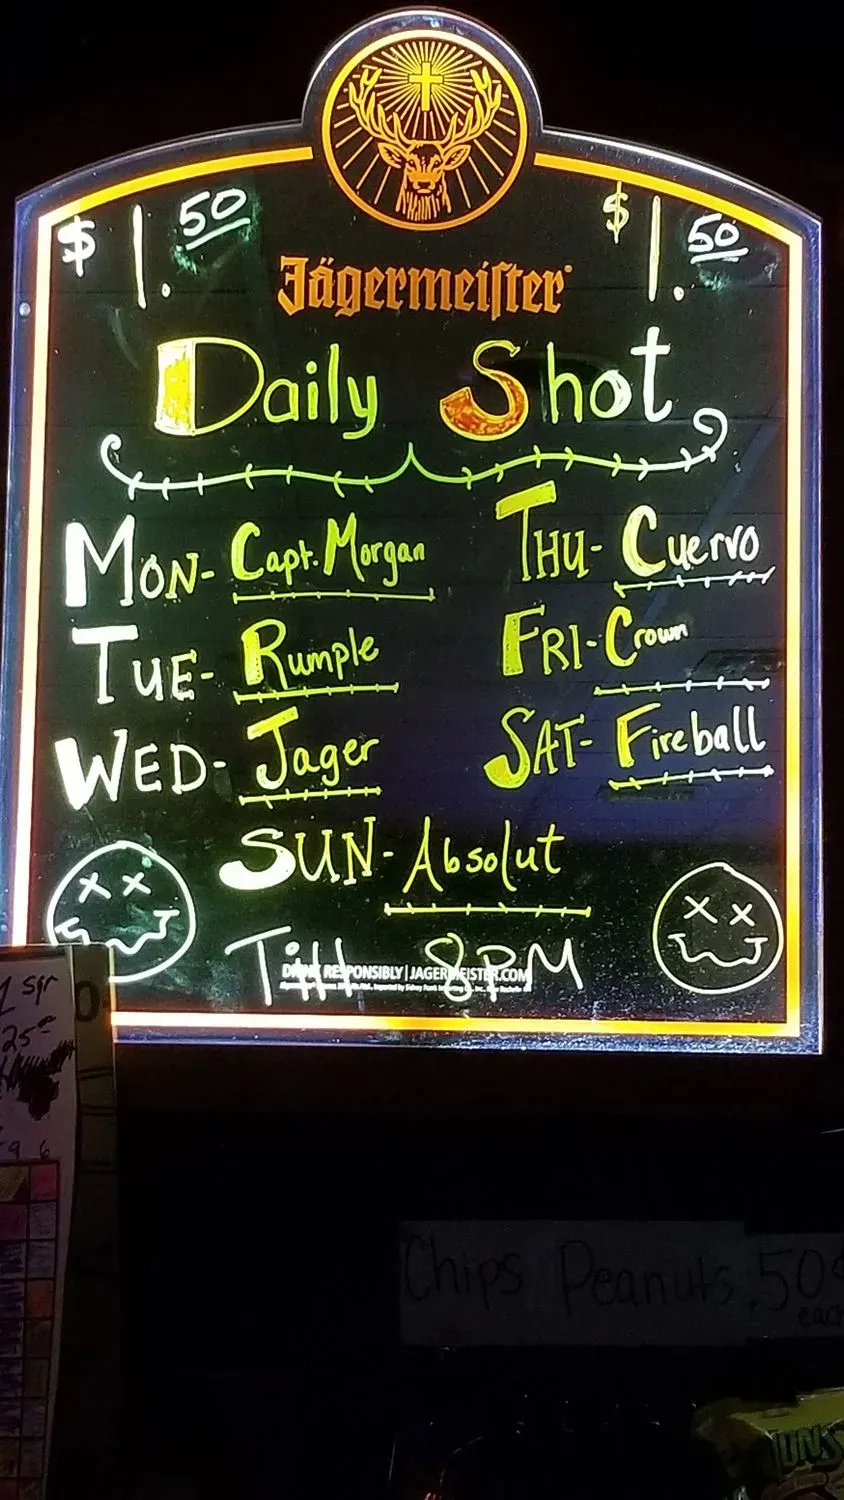 $ 1.50 $ 1.50
Jägermeister
Daily Shot
MON- Capt. Morgan
TUE- Rumple
WED- Jager
THU- Cuervo
FRI- Crown
SAT- Fireball
SUN- Absolut
Till 8PM
DRINK RESPONSIBLY | JAGERMEISTER.COM
1 sqr
25¢
9 6
Chips Peanuts .50¢
each